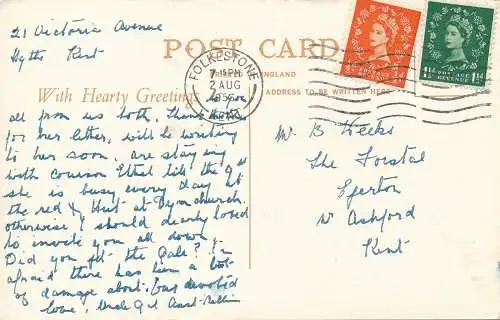 21 Victoria Avenue
Hythe Kent
POST CARD
ENGLAND
ADDRESS TO BE WRITTEN HERE
FOLKESTONE
7 - PM
2 AUG
1956
KENT
POSTAGE
REVENUE
With Hearty Greetings
to you
all from us both, thank
for her letter, will be writing
to her soon, are staying
with cousin Ethel till the 9th
she is busy every day at
the red Hut at Dymchurch.
otherwise I should dearly loved
to invite you all down.
Did you get the Gale? I'm
afraid there has been a lot
of damage about. Your devoted
love, Uncle G & Aunt
Mr B Weeks
The Forstal
Egerton
Nr Ashford
Kent